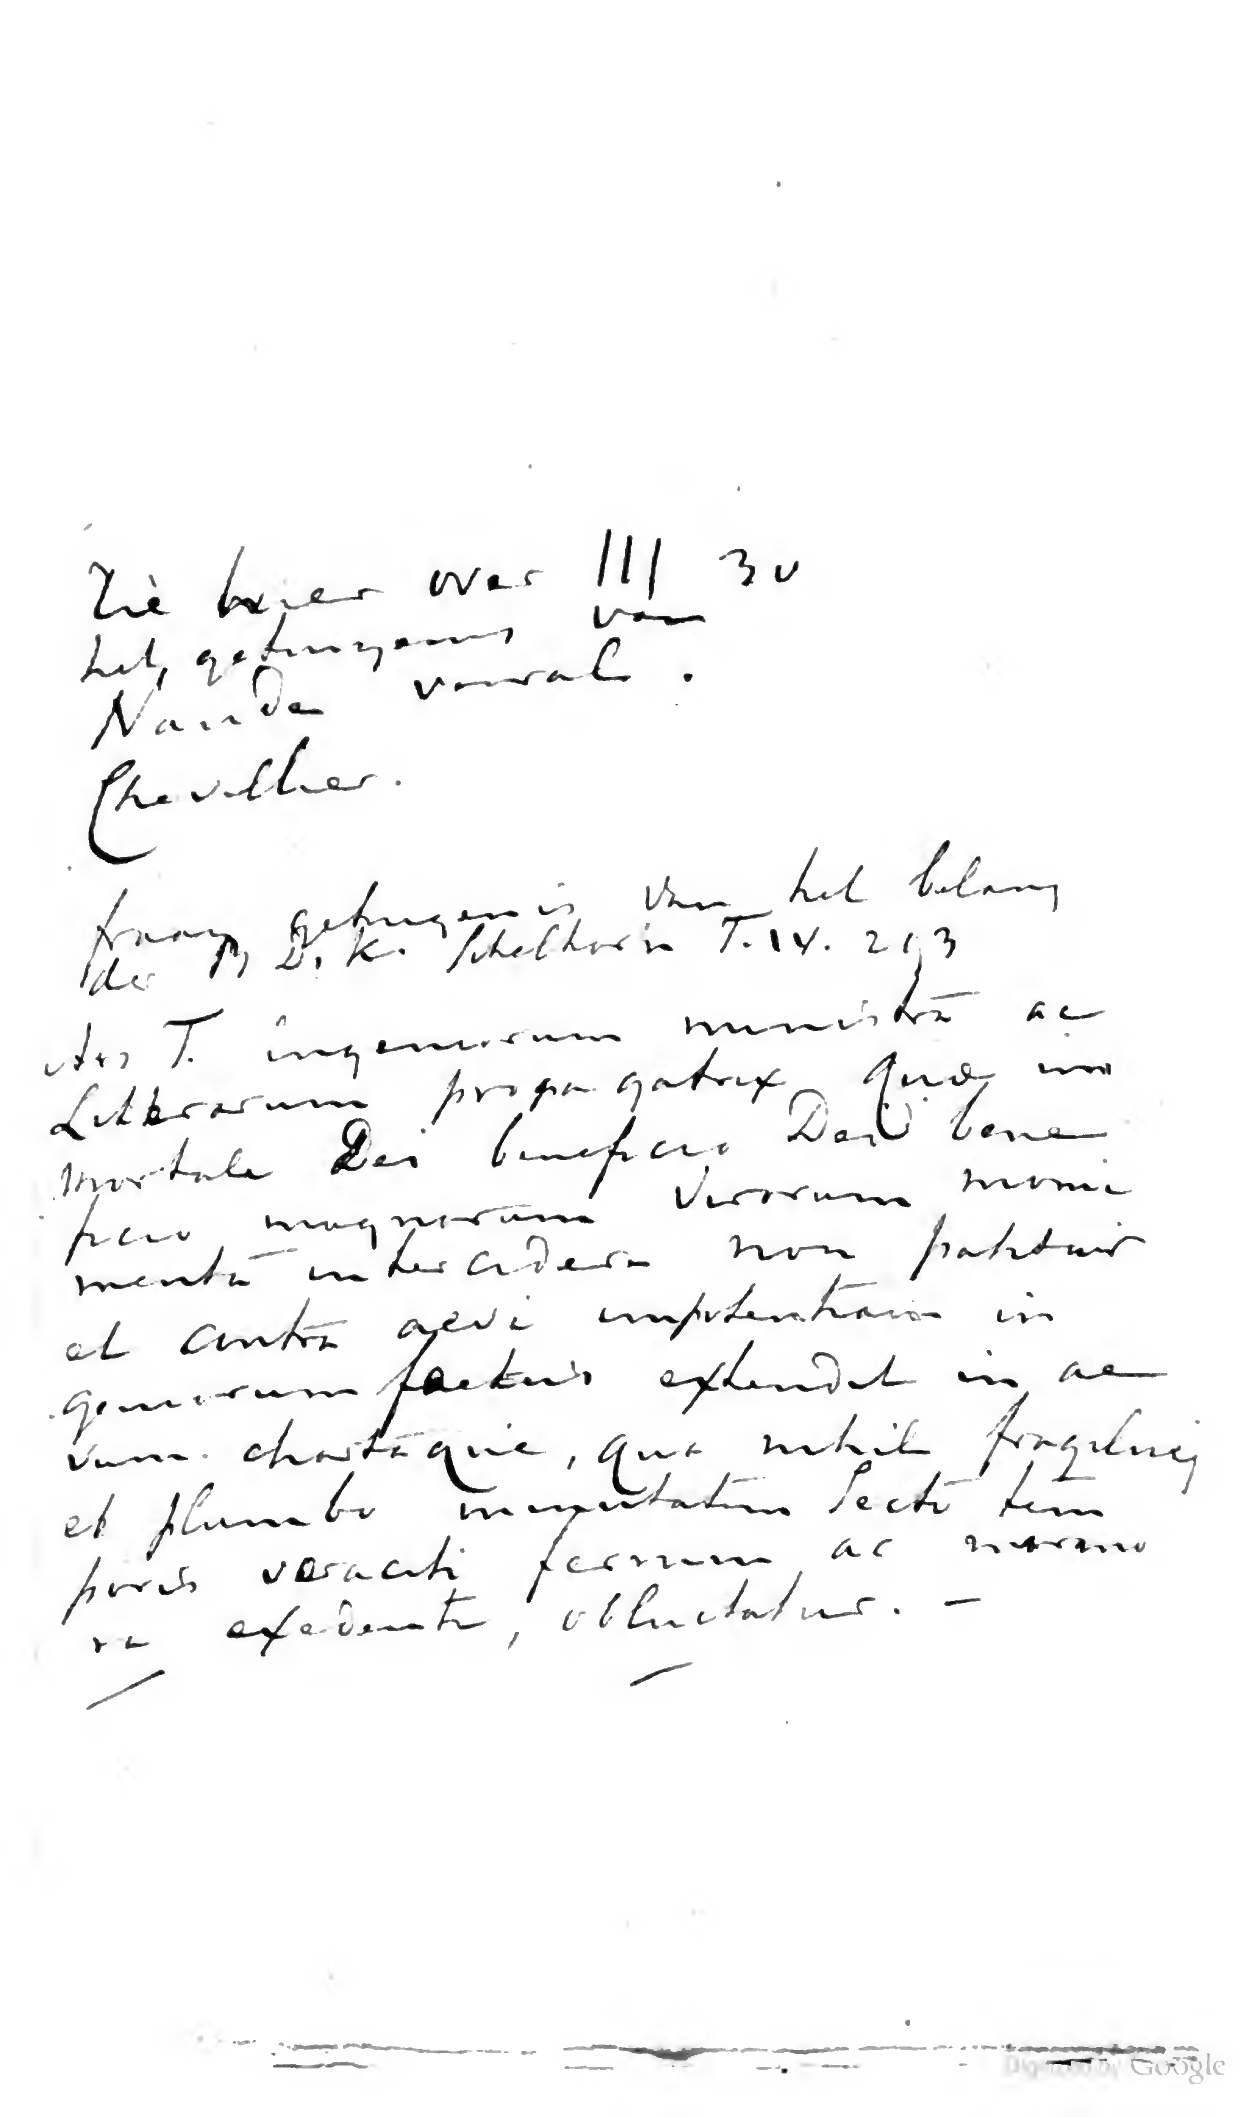 Zie hier over III 30
het, getuigenis van
Naudé vooral.
Chevillier.
fraay getuigenis van het belang
der D. K. Schelhorn T. IX. 213
Ars T. ingeniorum ministra ac
Litterarum propagatrix quae im
mortale Dei beneficio Dei bene
ficio magnorum virorum moni
menta intercidere non patitur
et contra aevi impotentiam in
geniorum foetus extendit in ae
vum chartaque, qua nihil fragilius,
et plumbo minutatim Secto tem
poris voraciti ferrum ac marmo
ra exedenti, obluctatur. —
Digitized by Google